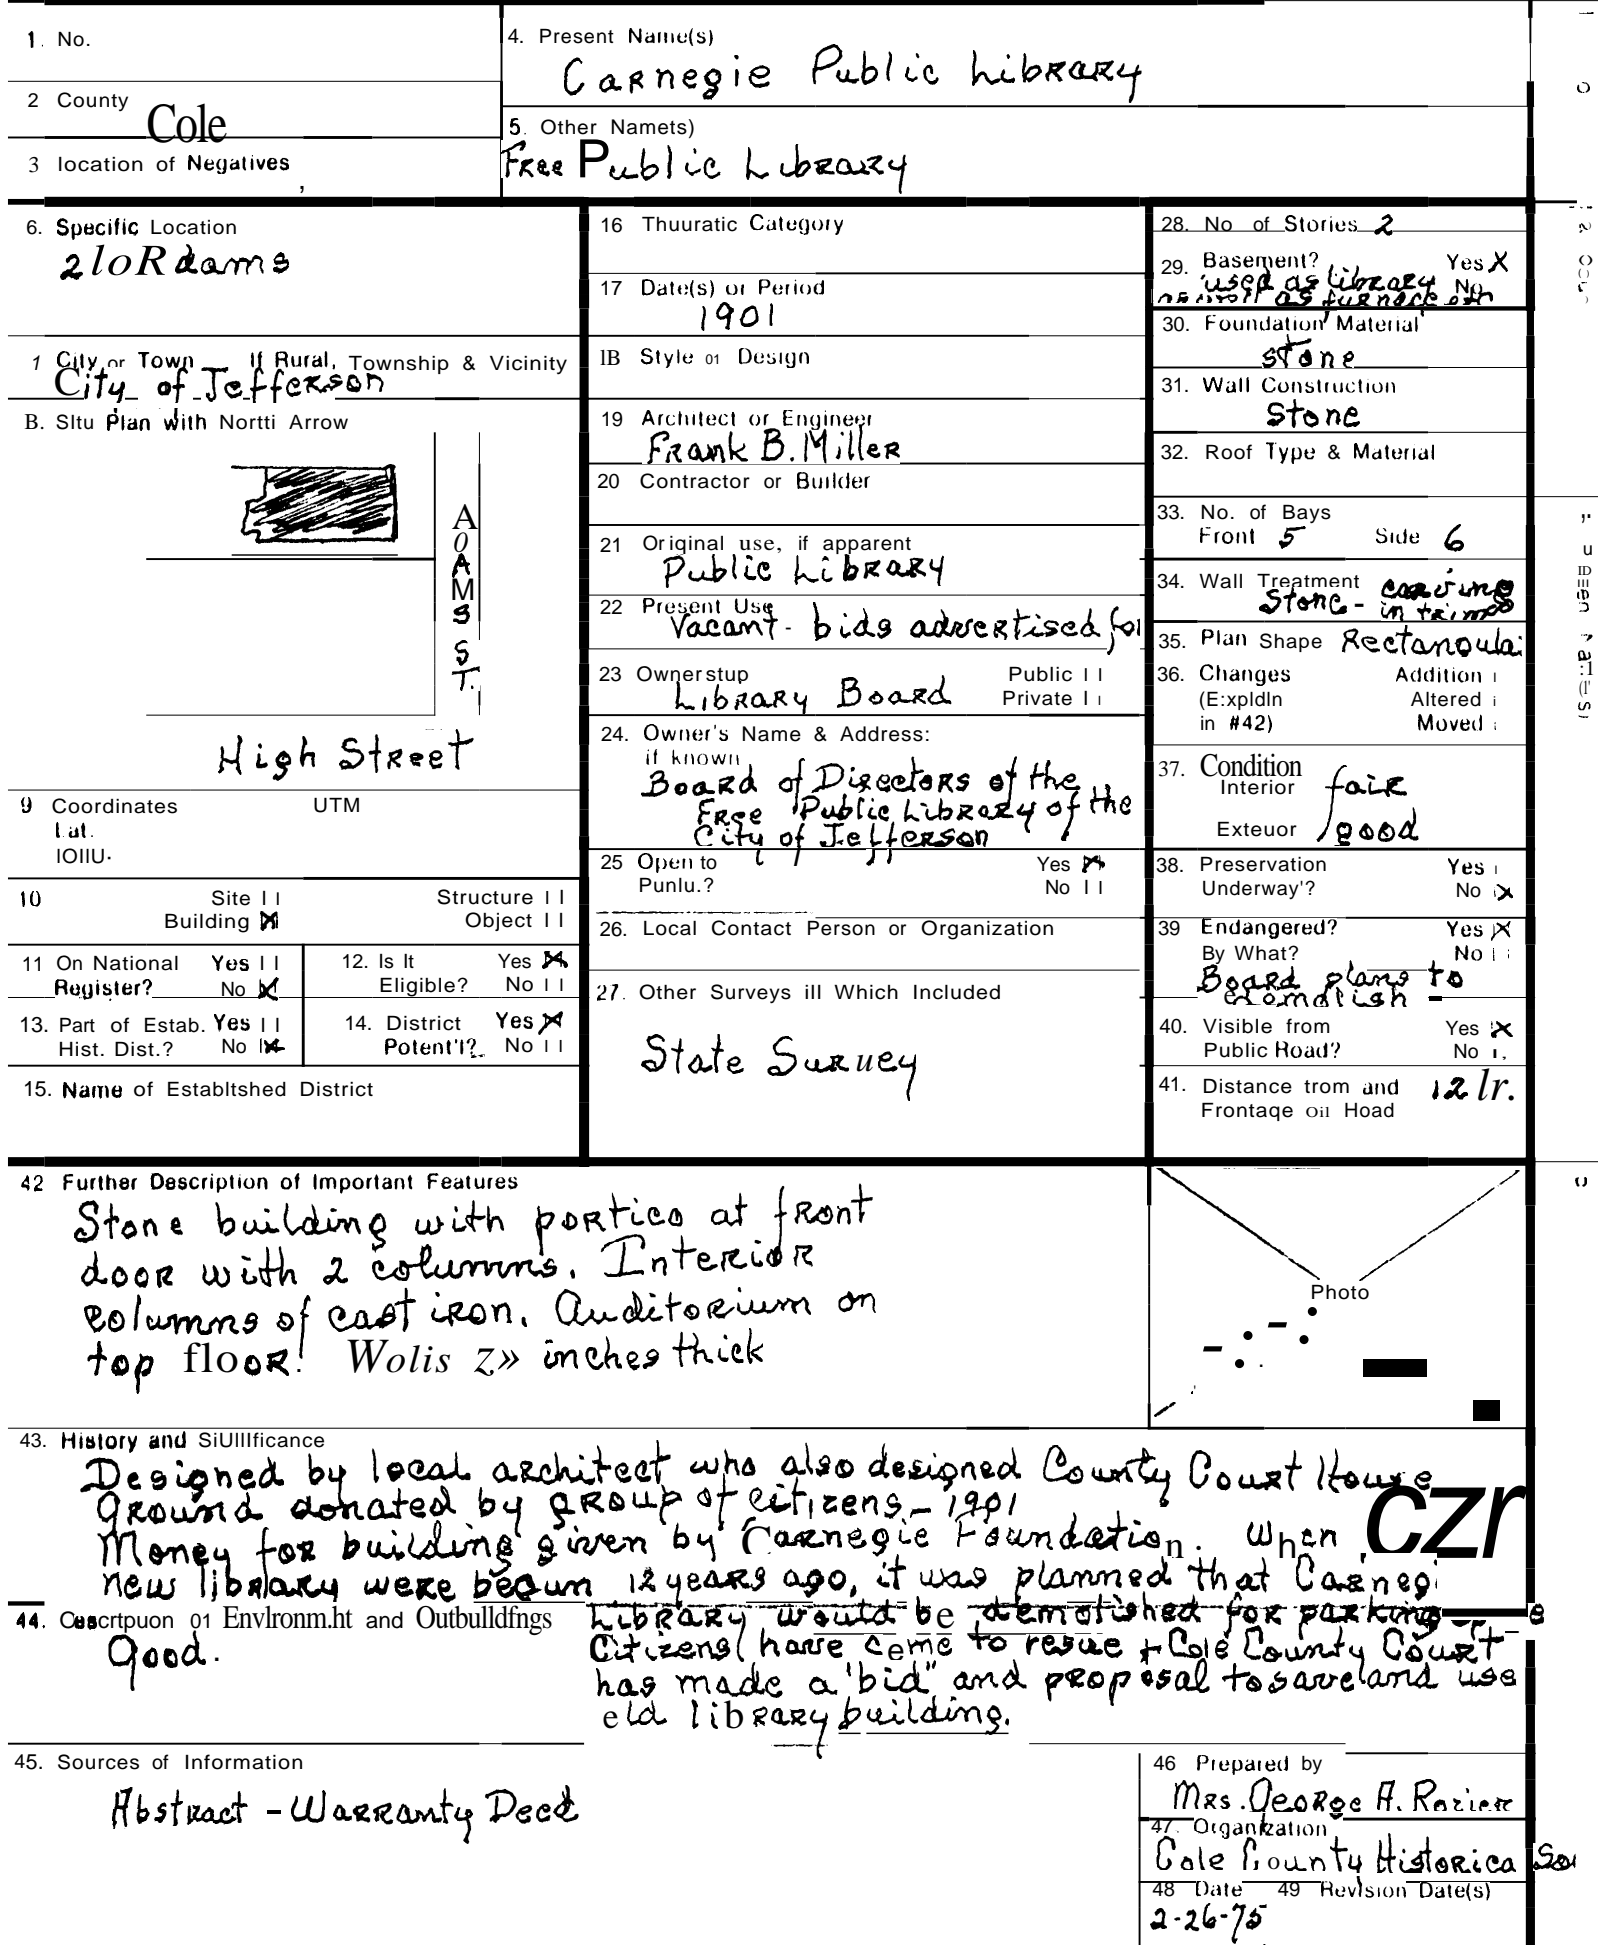 1. No.
2 County
Cole
3 location of Negatives
4. Present Name(s)
Carnegie Public Library
5. Other Namets)
Free Public Library
6. Specific Location
2loRdams
1 City or Town If Rural, Township & Vicinity
City of Jefferson
B. Sltu Plan with Nortti Arrow
A0AMS ST.
High Street
9 Coordinates UTM
Lat.
IOIIU·
10 Site
Structure
Building X
Object
11 On National Register? Yes No X
12. Is It Eligible? Yes X No
13. Part of Estab. Hist. Dist.? Yes No X
14. District Potent'l? Yes X No
15. Name of Establtshed District
16 Thuuratic Category
17 Date(s) or Period
1901
IB Style 01 Design
19 Architect or Engineer
Frank B. Miller
20 Contractor or Builder
21 Original use, if apparent
Public Library
22 Present Use
Vacant - bids advertised for
23 Ownerstup Public
Library Board Private
24. Owner's Name & Address:
if known
Board of Directors of the
Free Public Library of the
City of Jefferson
25 Open to Yes X
Punlu.? No
26. Local Contact Person or Organization
27. Other Surveys ill Which Included
State Survey
28. No of Stories 2
29. Basement? Yes X
used as library No
as furnace
30. Foundation Material
stone
31. Wall Construction
Stone
32. Roof Type & Material
33. No. of Bays
Front 5 Side 6
34. Wall Treatment
Stone - carving
in trim
35. Plan Shape Rectangular
36. Changes Addition
(E:xpldln Altered
in #42) Moved
37. Condition
Interior fair
Exteuor good
38. Preservation Yes
Underway'? No X
39 Endangered? Yes X
By What? No
Board plans to
demolish -
40. Visible from Yes X
Public Road? No
41. Distance trom and 12 lr.
Frontaqe Oil Hoad
42 Further Description of Important Features
Stone building with portico at front
door with 2 columns. Interior
columns of cast iron. Auditorium on
top floor! Wolis z» inches thick
Photo
43. History and SiUlllficance
Designed by local architect who also designed County Court House
Ground donated by group of citizens - 1901
Money for building given by Carnegie Foundation. When czr
new library were begun 12 years ago, it was planned that Carnegi
e
Library would be demolished for parking
Citizens have come to resue + Cole County Court
has made a "bid" and proposal to save and use
old library building.
44. Cuscrtpuon 01 Envlronm.ht and Outbulldfngs
Good.
45. Sources of Information
Abstract - Warranty Deed
46 Prepared by
Mrs. George A. Rozier
47. Organization
Cole County Historica So
48 Date 49 Revision Date(s)
2-26-75